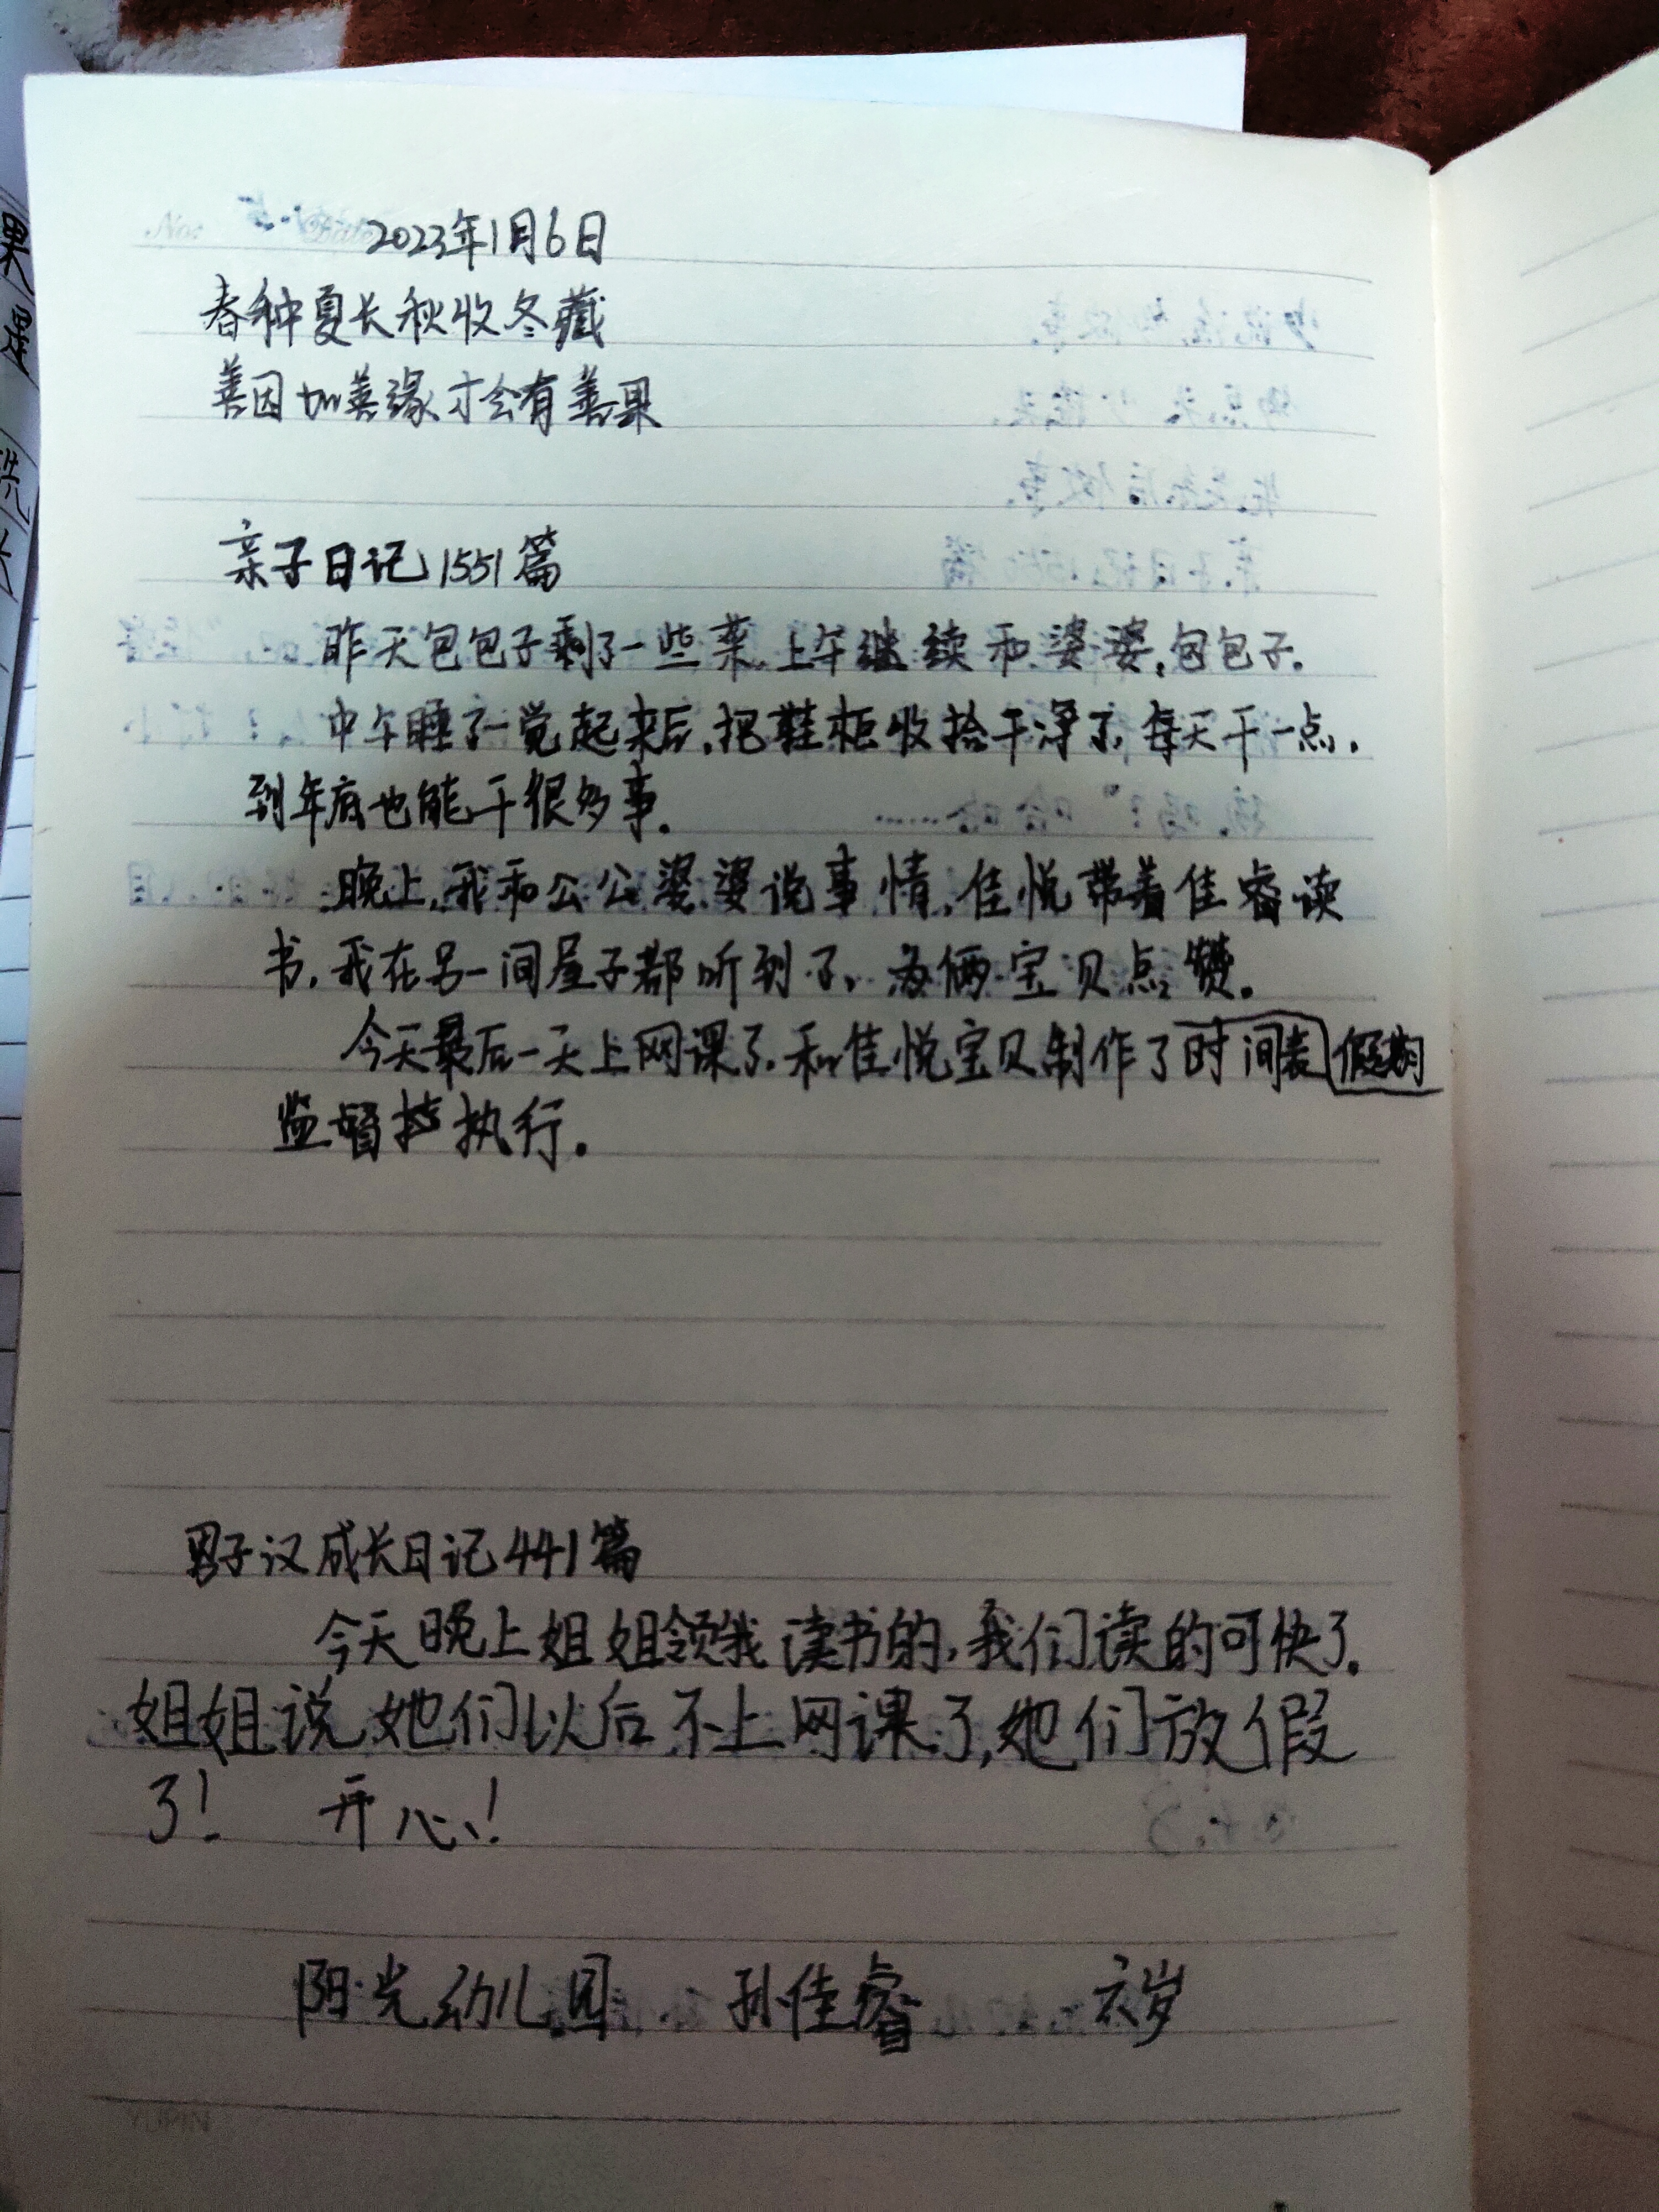 2023年1月6日
春种夏长秋收冬藏
善因加善缘才会有善果
亲子日记1551篇
昨天包包子剩了一些菜.上午继续和婆婆,包包子.
中午睡了一觉起来后,把鞋柜收拾干净了,每天干一点,
到年底也能干很多事.
晚上,我和公公婆婆说事情,佳悦带着佳睿读
书,我在另一间屋子都听到了,为俩宝贝点赞.
今天最后一天上网课了.和佳悦宝贝制作了时间表假期
监督执行.
男子汉成长日记441篇
今天晚上姐姐领我读书的,我们读的可快了.
姐姐说她们以后不上网课了,她们放假
了! 开心!
阳光幼儿园 孙佳睿 六岁